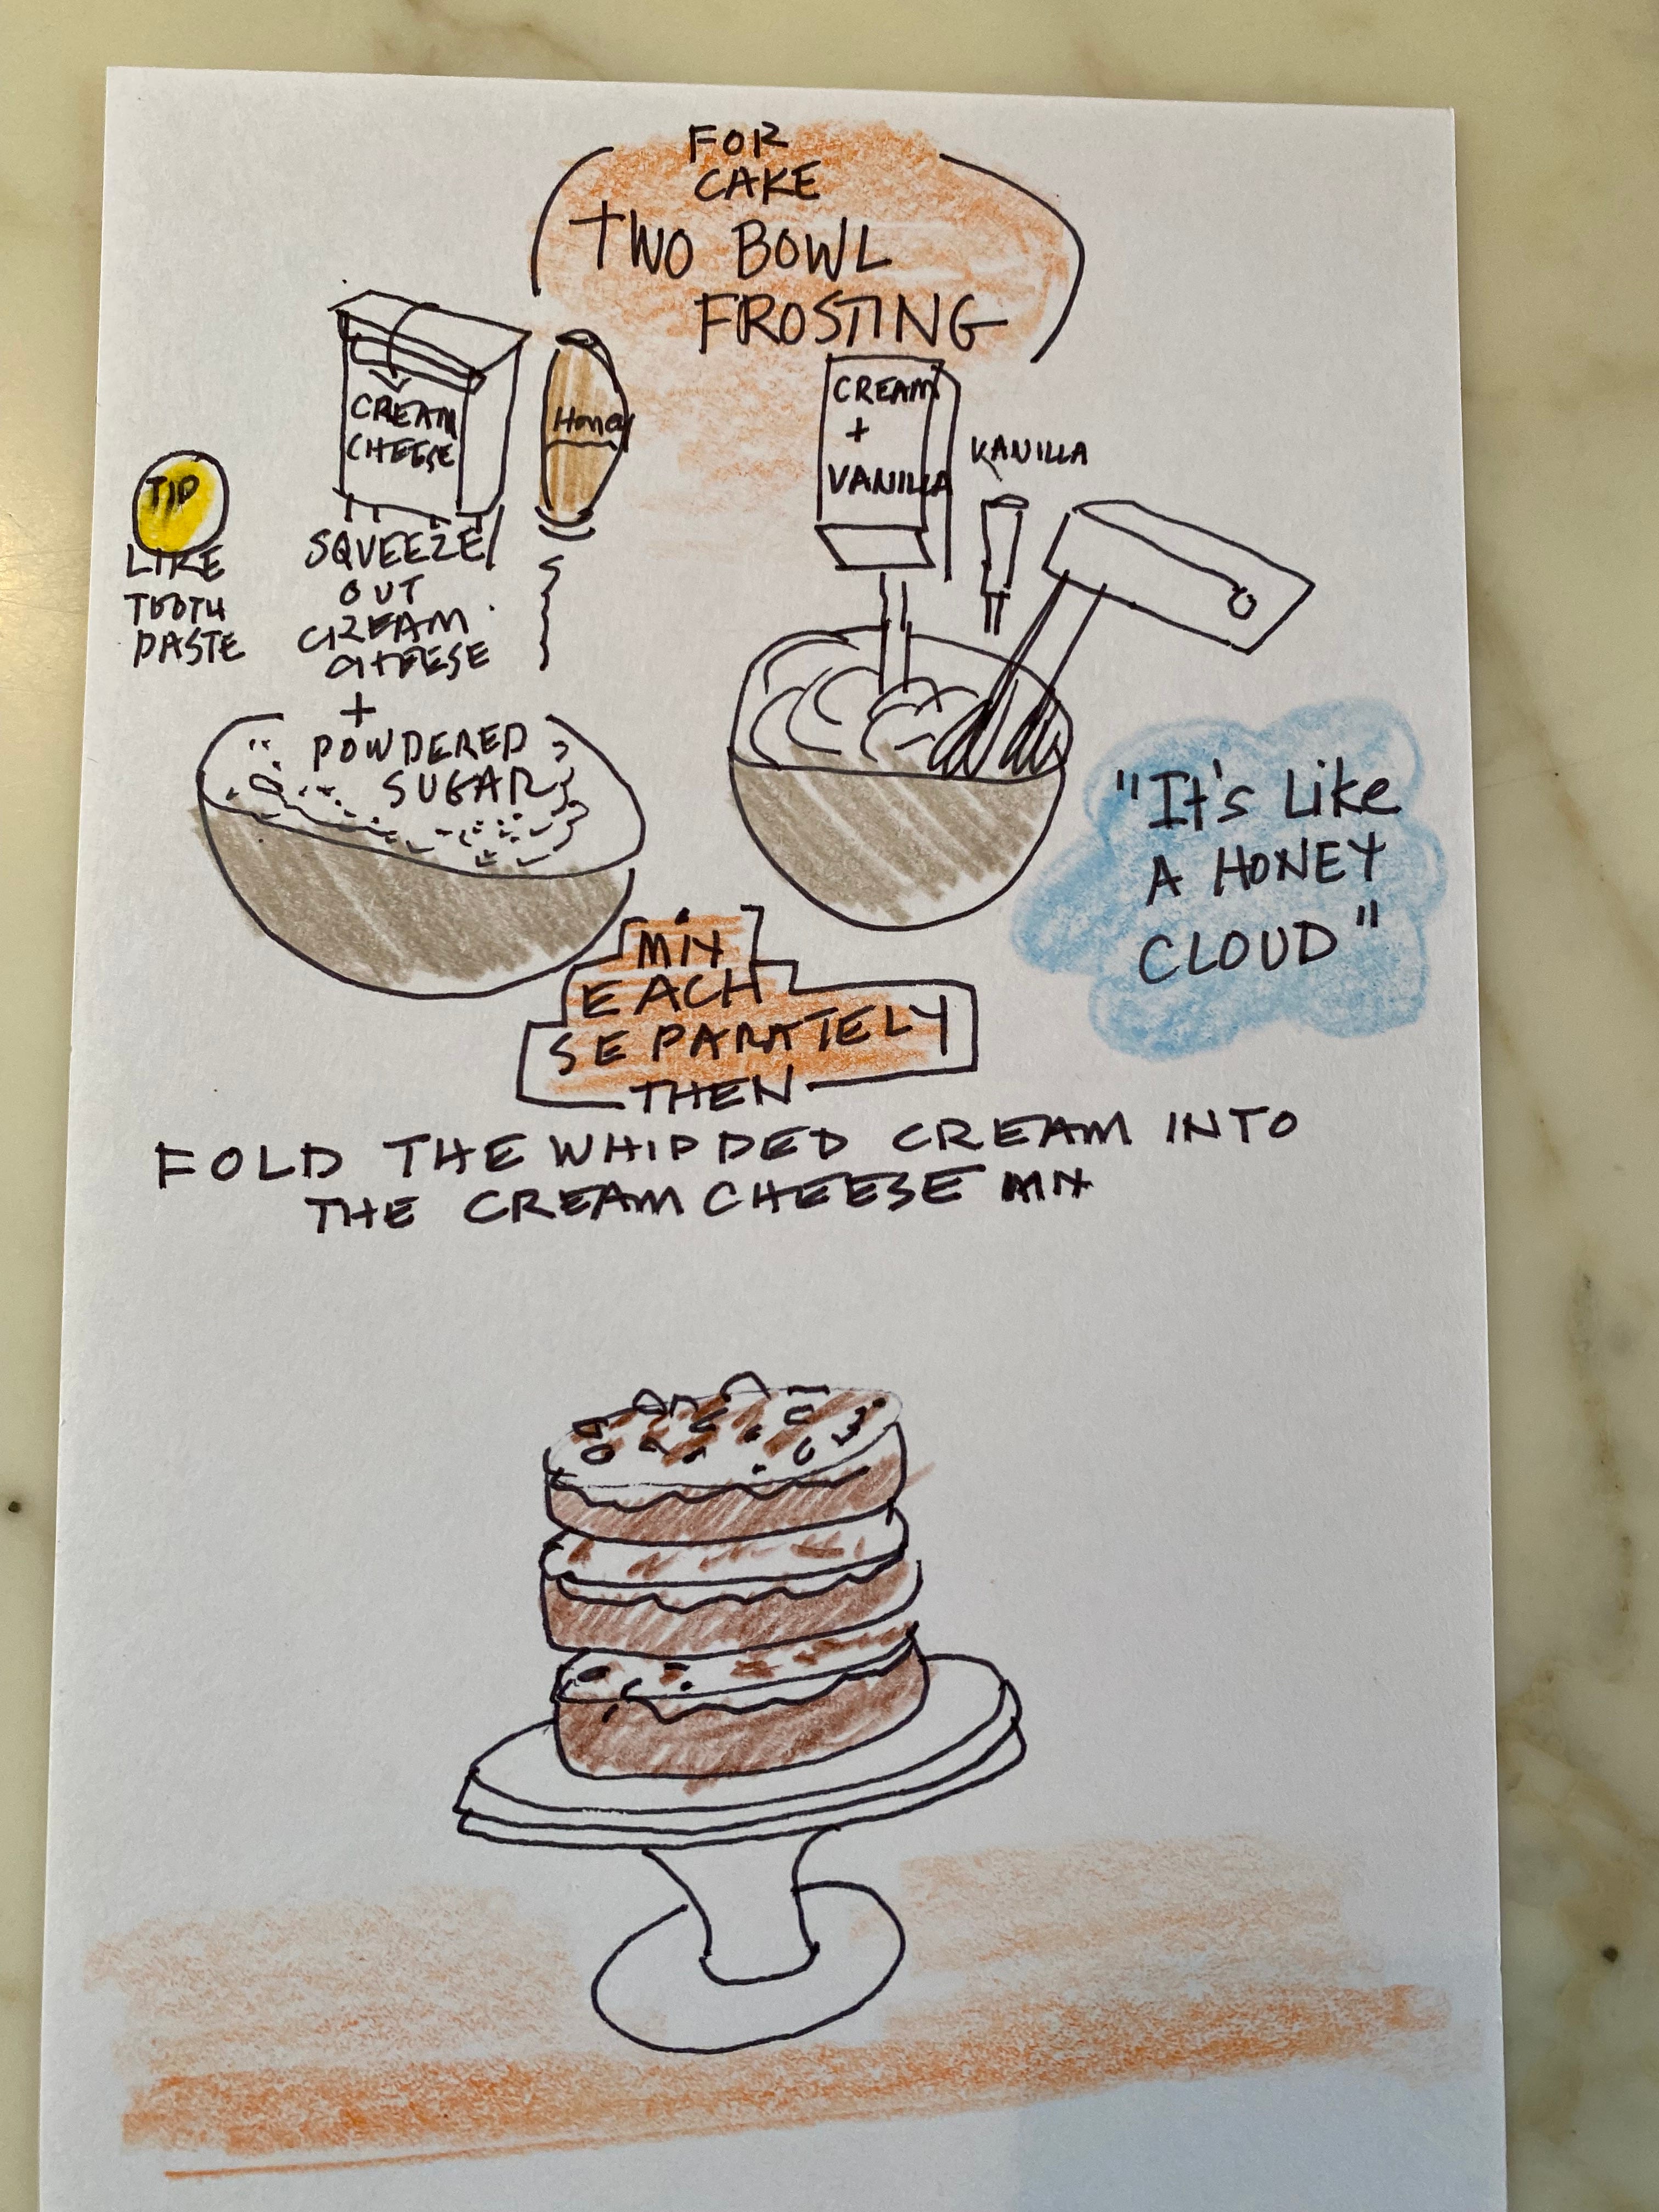 FOR
CAKE
TWO BOWL
FROSTING
CREAM
CHEESE
Honey
CREAM
+
VANILLA
VANILLA
TIP
LIKE
TOOTH
PASTE
SQUEEZE
OUT
CREAM
CHEESE
+
POWDERED
SUGAR
"It's Like
A HONEY
CLOUD"
MIX
EACH
SEPARATELY
THEN
FOLD THE WHIPPED CREAM INTO
THE CREAM CHEESE MIX